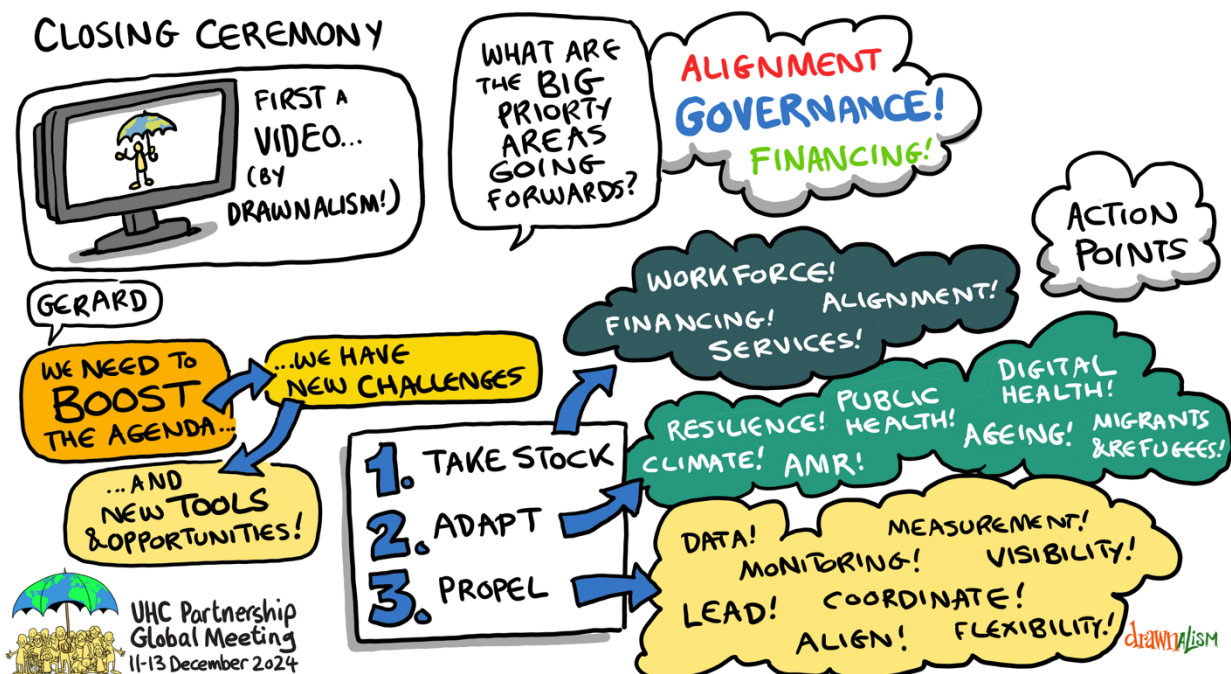 CLOSING CEREMONY
FIRST A
VIDEO...
(BY
DRAWNALISM!)
WHAT ARE
THE BIG
PRIORTY
AREAS
GOING
FORWARDS?
ALIGNMENT
GOVERNANCE!
FINANCING!
ACTION
POINTS
GERARD
WE NEED TO
BOOST
THE AGENDA...
...WE HAVE
NEW CHALLENGES
...AND
NEW TOOLS
& OPPORTUNITIES!
1. TAKE STOCK
2. ADAPT
3. PROPEL
WORKFORCE!
ALIGNMENT!
FINANCING!
SERVICES!
DIGITAL
HEALTH!
PUBLIC
HEALTH!
RESILIENCE!
AGEING!
MIGRANTS
& REFUGEES!
CLIMATE!
AMR!
DATA!
MEASUREMENT!
MONITORING!
VISIBILITY!
LEAD!
COORDINATE!
ALIGN!
FLEXIBILITY!
UHC Partnership
Global Meeting
11-13 December 2024
drawnalism